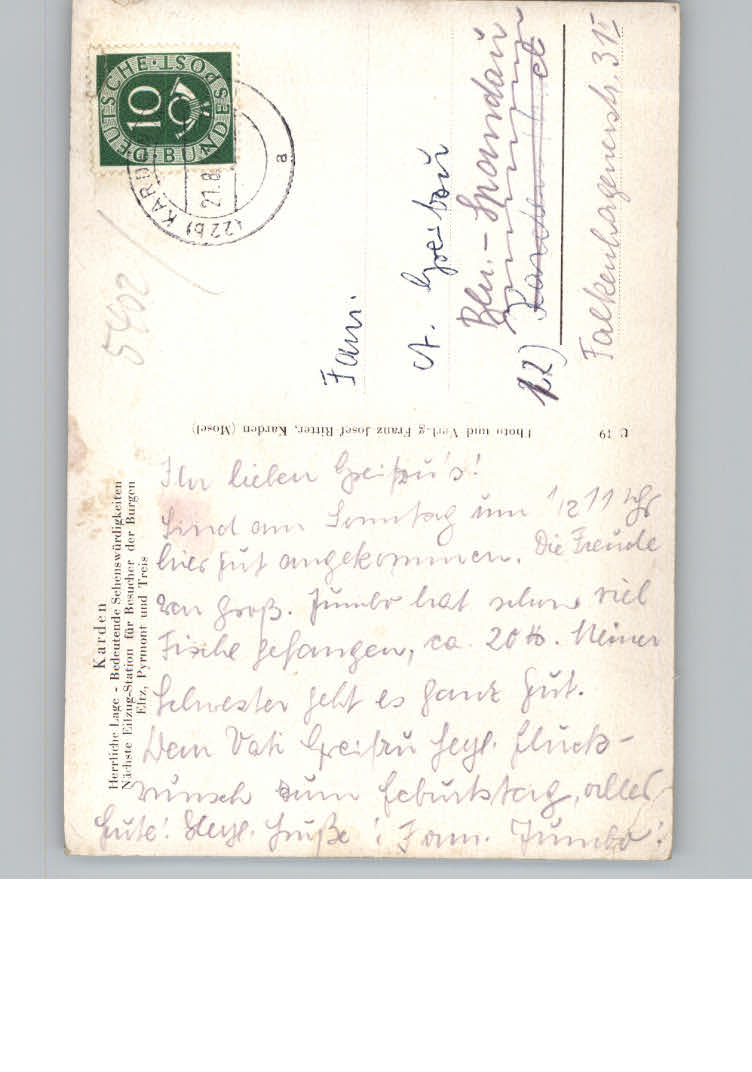 Karden
Herrliche Lage - Bedeutende Sehenswürdigkeiten
Nächste Eilzug-Station für Besucher der Burgen
Eltz, Pyrmont und Treis
Ihr lieben
Sind am Sonntag um 1/2 11 Uhr
hier gut angekommen. Die Freude
war groß. Jumbo hat schon viel
Fische gefangen, ca. 20 Meiner
Schwester geht es ganz gut.
Dem Vati herzl. Glück-
wunsch zum Geburtstag, alles
Gute! Herzl. Grüße! Fam. Jumbo!
C 19 Photo und Verlag Franz Josef Ritter, Karden (Mosel)
DEUTSCHE BUNDESPOST
10
(22b) KARDEN
21.8.
a
5402
Fam.
A.
Bln.-Spandau
Falkenhagenerstr. 31 II